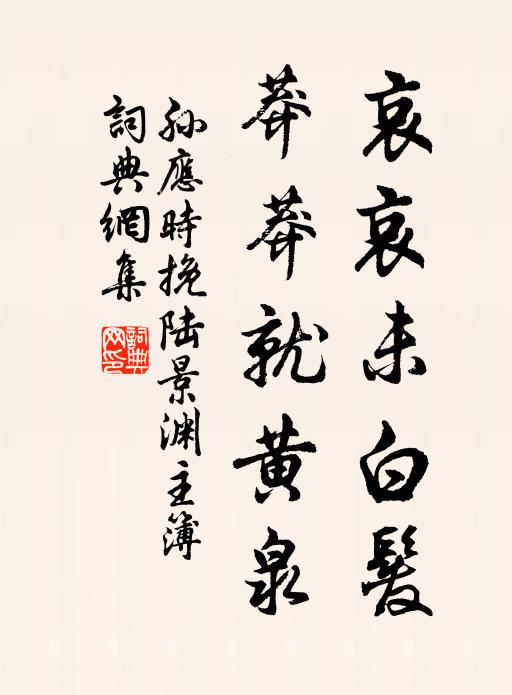 哀哀未白髮
莽莽就黃泉
孫應時挽陸景淵主簿
詞典網集
詞典網印